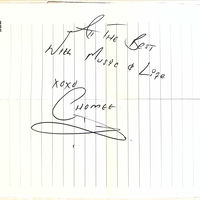 All The Best
With Music & Life
xoxo
Chomee